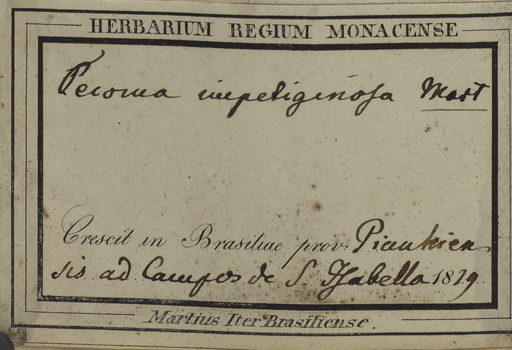 HERBARIUM REGIUM MONACENSE
Tecoma impetiginosa Mart
Crescit in Brasiliae prov. Piauhien
sis ad Campos de S. Isabella 1819.
Martius Iter Brasiliense.